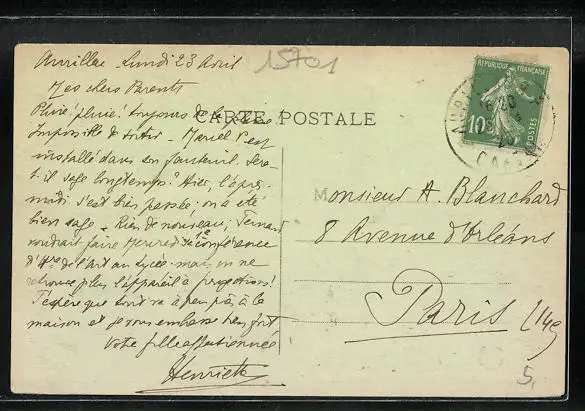 Aurillac Lundi 23 Avril
15T01
Mes chers Parents
Pluie! pluie! toujours de la pluie!
Impossible de sortir - Marcel s'est
installé dans son fauteuil. Sera-
t-il sage longtemps? Hier, l'après-
midi s'est bien passée: on a été
bien sage. Rien de nouveau; Fernand
voudrait faire Mercredi sa 1e conférence
d'Hre de l'Art au Lycée. mais on ne
retrouve plus l'appareil à projections!
J'espère que tout va à peu près à la
maison et je vous embrasse bien fort
Votre fille affectionnée
Henriette
CARTE POSTALE
RÉPUBLIQUE FRANÇAISE
10
POSTES
Monsieur A. Blanchard
8 Avenue d'Orléans
Paris (14e)
5,